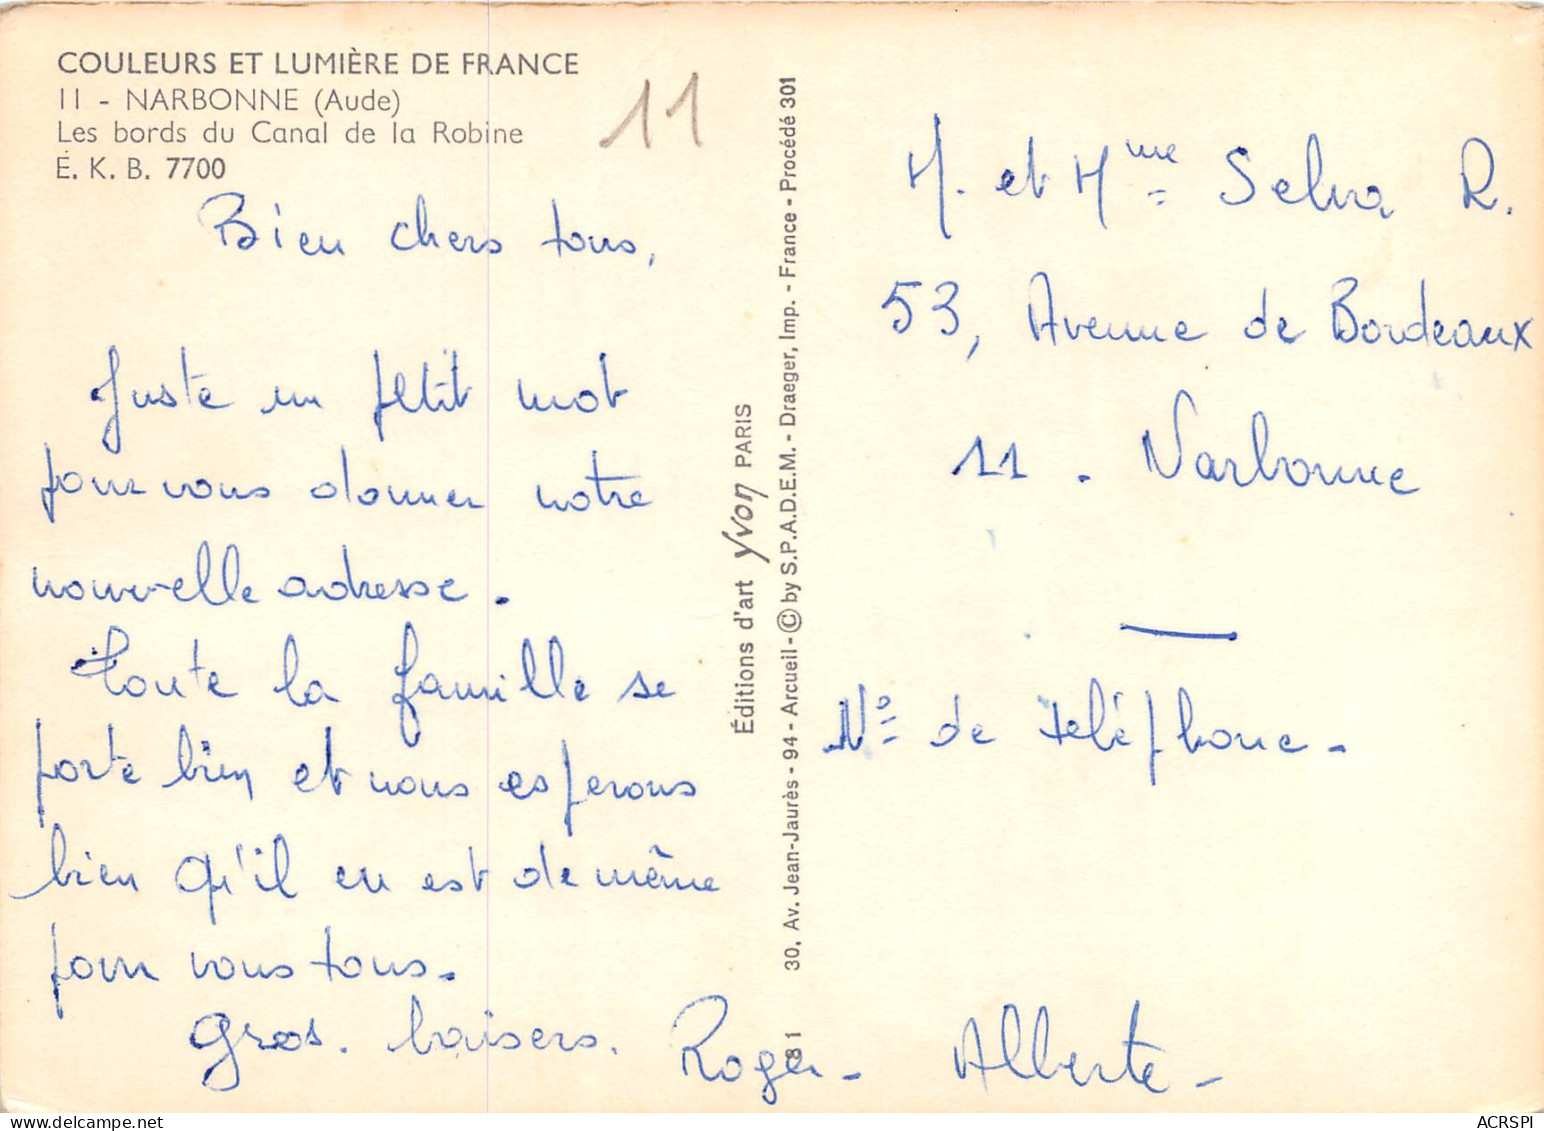 COULEURS ET LUMIÈRE DE FRANCE
11 - NARBONNE (Aude)
Les bords du Canal de la Robine
E. K. B. 7700
11
Bien chers tous,
Juste un petit mot
pour vous donner notre
nouvelle adresse.
Toute la famille se
porte bien et nous esperons
bien qu'il en est de même
pour vous tous.
Gros. baisers. Roger - Alberte -
Éditions d'art Yvon PARIS
30, Av. Jean-Jaurès - 94 - Arcueil - © by S.P.A.D.E.M. - Draeger, Imp. - France - Procédé 301
81
M. et Mme Selva R.
53, Avenue de Bordeaux
11 . Narbonne
N° de téléphone -
ACRSPI